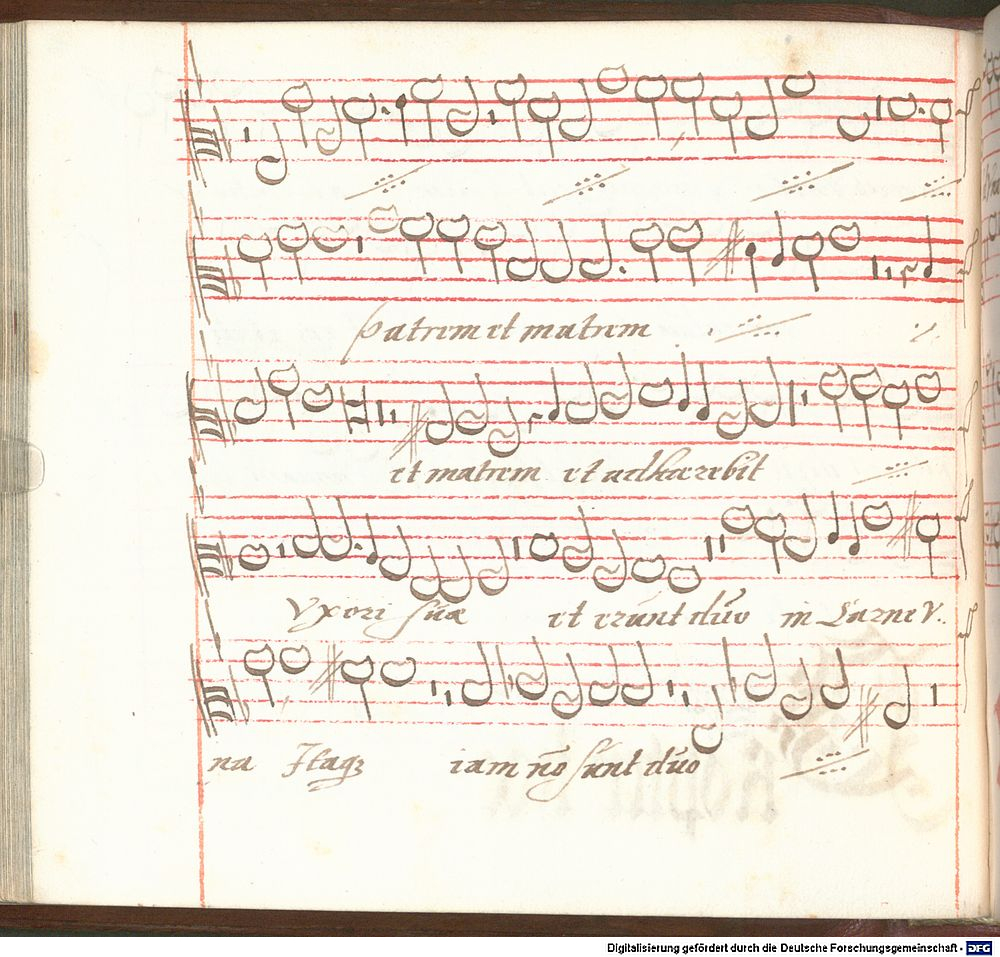 patrem et matrem
et matrem et adhærebit
Vxori suæ et erunt duo in Carne V..
na Itaqz iam nō sunt duo
Digitalisierung gefördert durch die Deutsche Forschungsgemeinschaft - DFG